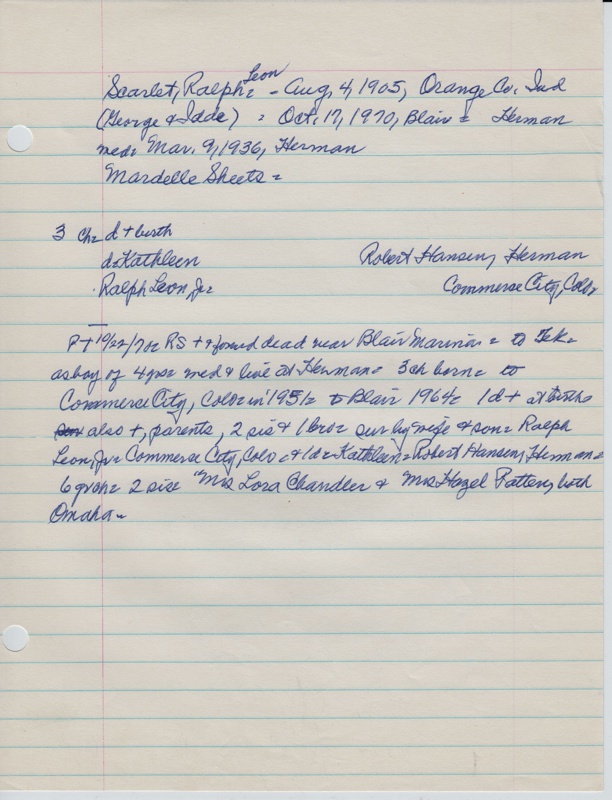 Leon
Scarlet, Ralph = - Aug. 4, 1905, Orange Co. Ind
(George & Idde) = Oct. 17, 1970, Blair = Herman
med= Mar. 9, 1936, Herman
Mardelle Sheets =
3 ch= d + birth
d=Kathleen Robert Hansen, Herman
Ralph Leon, Jr= Commerce City, Colo=
P+ 10/22/70= RS + found dead near Blair Marina = to Tek=
as boy of 4 yrs= med & live at Herman= 3 ch born= to
Commerce City, Colo= in 1951= to Blair 1964= 1d + at birth=
also +, parents, 2 sis & 1 bro= sur by wife & son= Ralph
Leon, Jr= Commerce City, Colo= & 1d= Kathleen= Robert Hansen, Herman=
6 grch= 2 sis= "Mrs Lora Chandler & "Mrs Hazel Patten, both
Omaha=